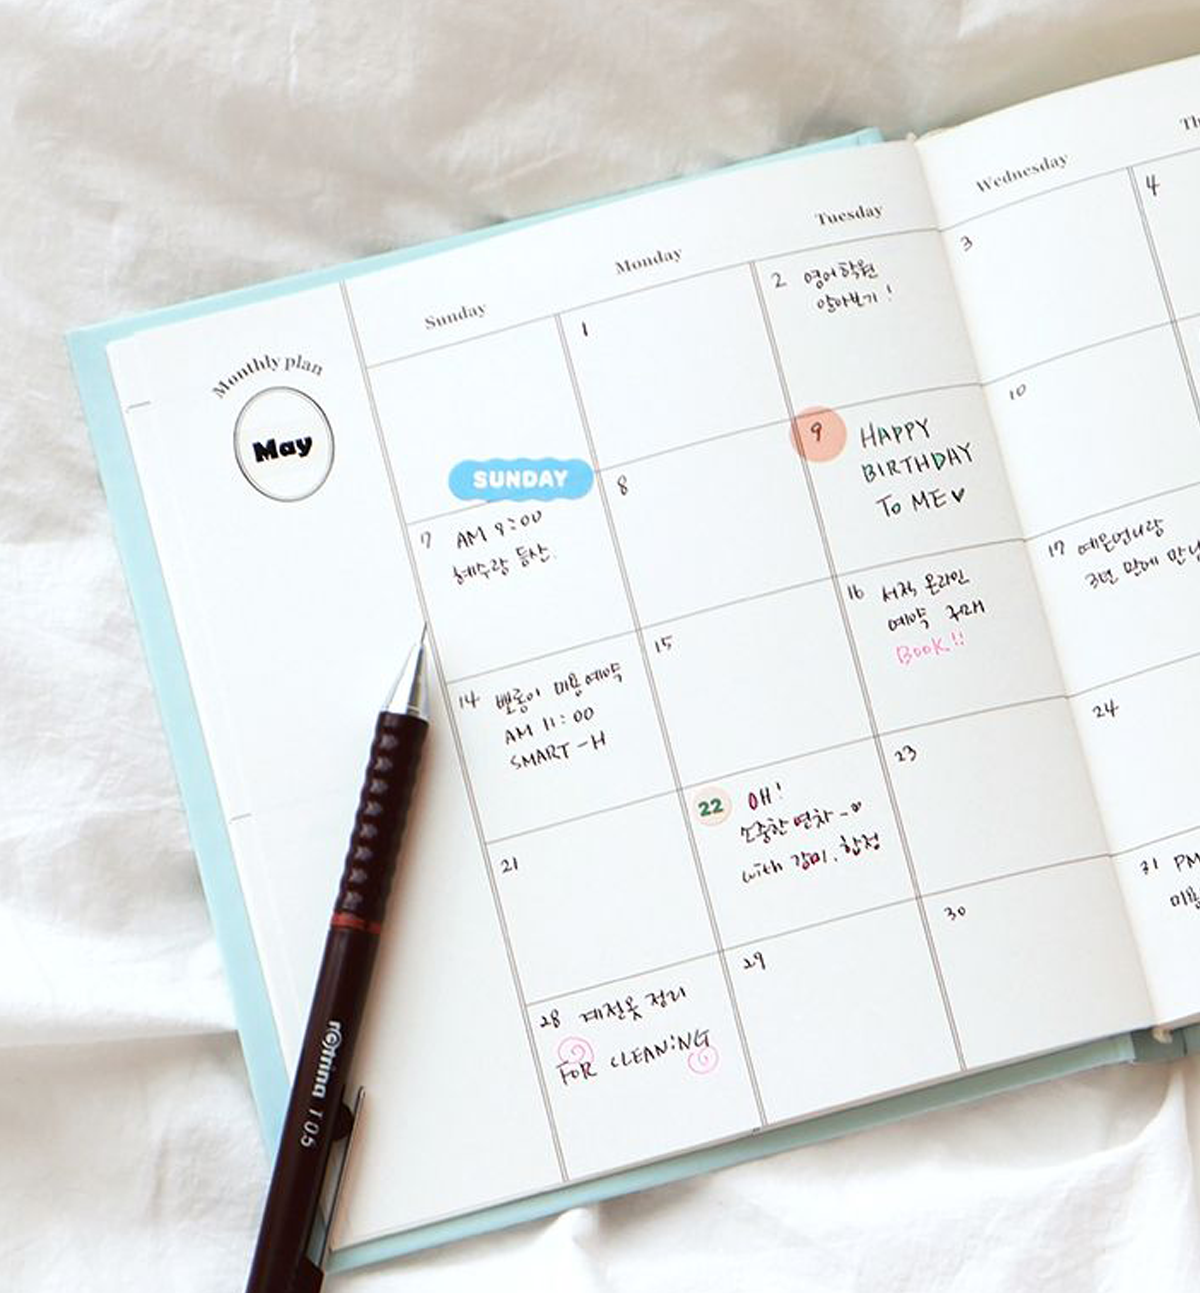 Monthly plan
May
Sunday
Monday
Tuesday
Wednesday
1
2 영어학원
알아보기!
3
4
SUNDAY
7 AM 9:00
혜수랑 등산.
8
9 HAPPY
BIRTHDAY
To ME♥
10
14 뽀롱이 미용예약
AM 11:00
SMART-H
15
16 서적 온라인
예약 구매
BOOK!!
17 예은언니랑
3년 만에
21
22 OH!
소중한 연차-♥
with 강미.합정
23
24
28 계절옷 정리
FOR CLEANING
29
30
31 PM
rotring T 0.5